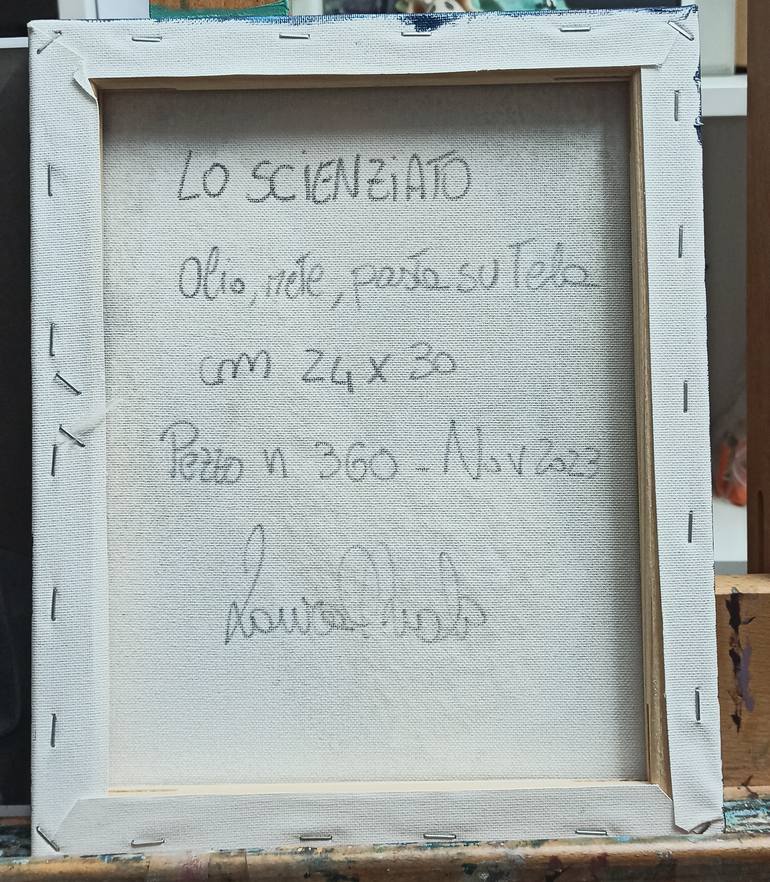 LO SCIENZiATO
Olio, rete, pasta su Tela
cm 24 x 30
Pezzo n 360 - Nov 2023
Laura